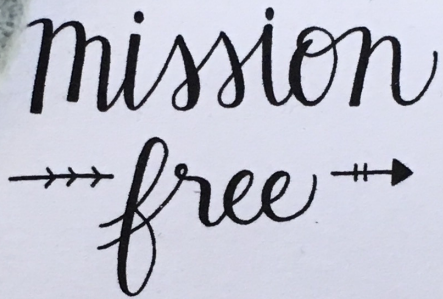 mission
free